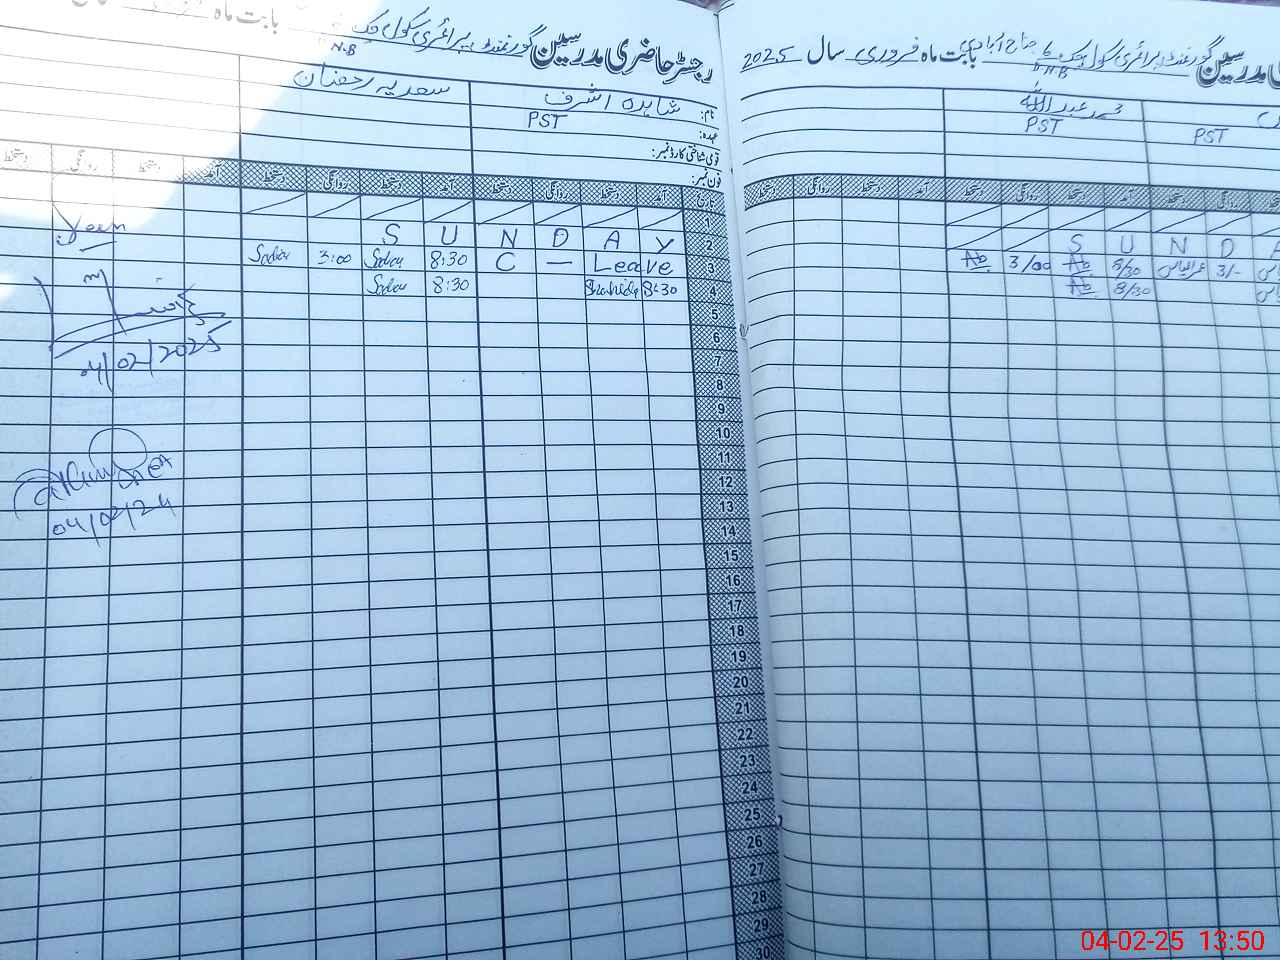 رجسٹر حاضری مدرسین گورنمنٹ پرائمری سکول چک
D.N.B
بابت ماہ
نام: شاہدہ اشرف سعدیہ رمضان
عہدہ: PST
قومی شناختی کارڈ نمبر:
فون نمبر:
تاریخ آمد دستخط روانگی دستخط آمد دستخط روانگی دستخط آمد دستخط روانگی دستخط
1
2 S U N D A Y
3 Sadia 3:00 Sadia 8:30 C — Leave
4 Sadia 8:30 Shahida 8:30
5
6
7
8
9
10
11
12
13
14
15
16
17
18
19
20
21
22
23
24
25
26
27
28
29
30
04/02/2025
04/02/24
مدرسین گورنمنٹ پرائمری سکول چک بابت ماہ فروری سال 2025
D.N.B
محمد عبداللہ
PST PST
آمد دستخط روانگی دستخط آمد دستخط روانگی دستخط
S U N D A
Ab 3/00 Ab 8/30 3/-
Ab 8/30
04-02-25 13:50